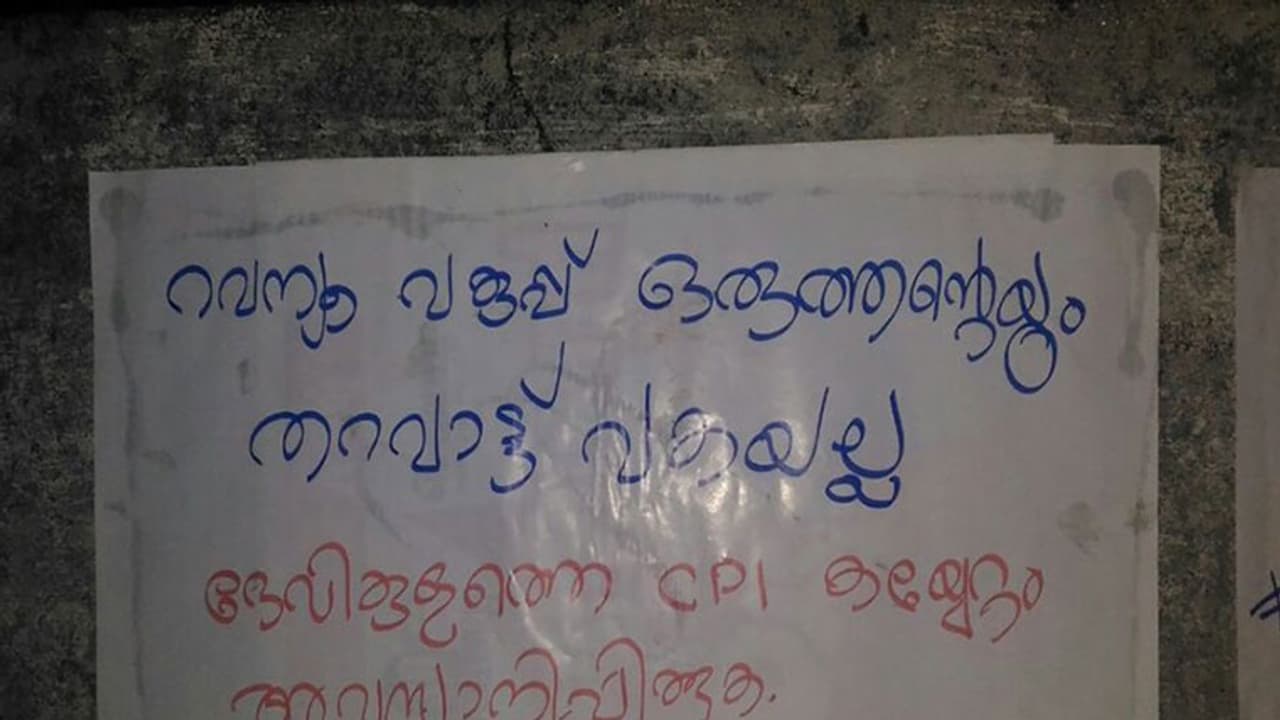 റവന്യൂ വകുപ്പ് ഒരുത്തന്റെയും
തറവാട്ട് വകയല്ല
ദേവികുളത്തെ CPI കയ്യേറ്റം
അവസാനിപ്പിക്കുക.